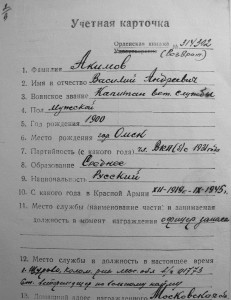 Учетная карточка
Орденская книжка № 314302
1. Фамилия Акимов
2. Имя и отчество Василий Андреевич
3. Воинское звание Капитан вет. службы
4. Пол Мужской
5. Год рождения 1900
6. Место рождения гор Омск
7. Партийность (с какого года) чл. ВКП(б) с 1921 года
8. Образование Среднее
9. Национальность Русский
10. С какого года в Красной Армии XII-1919 - IX-1945 г.
11. Место службы (наименование части) и занимаемая
должность в момент награждения офицер запаса
12. Место службы и должность в настоящее время
Московской об